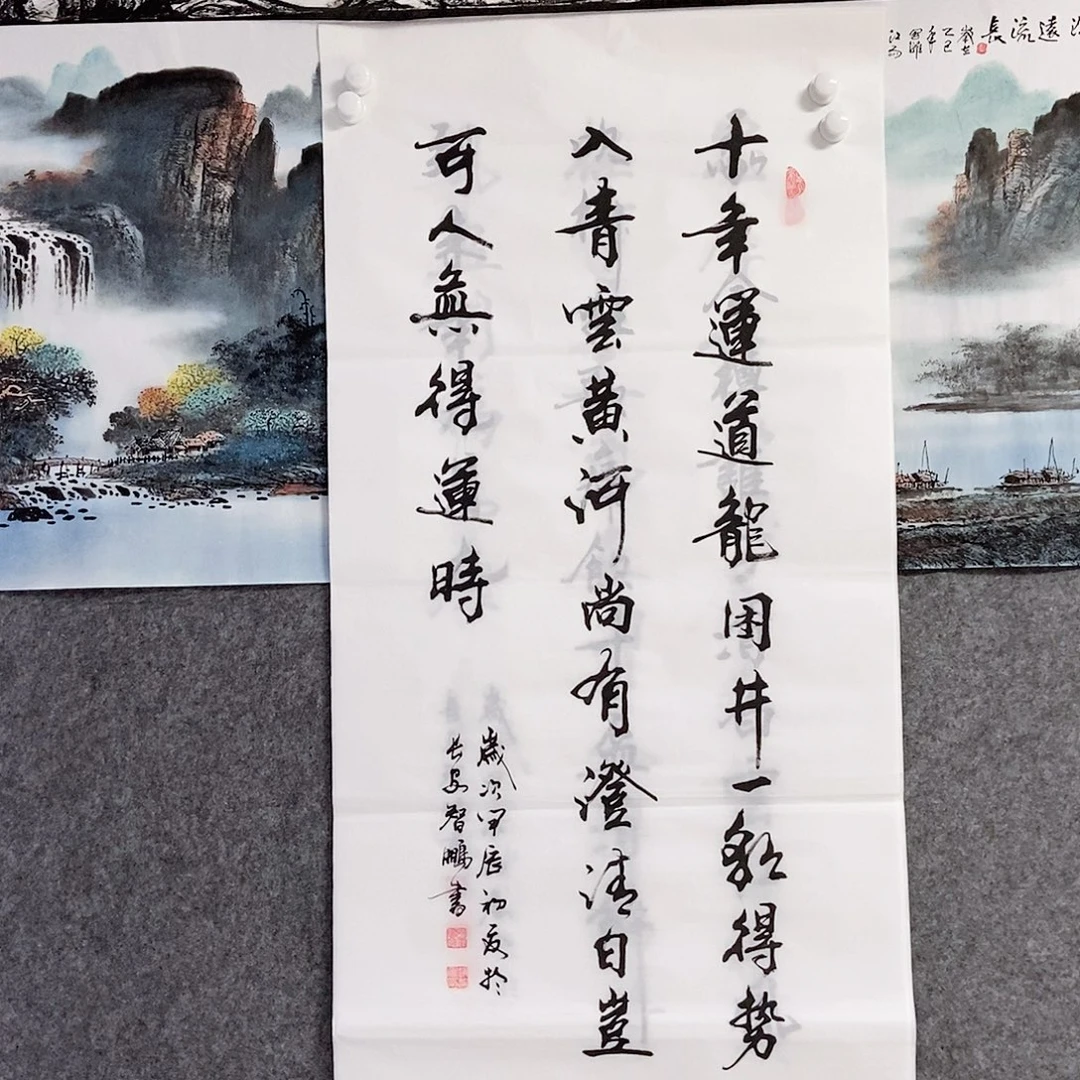 十年運道龍困井一朝得勢
入青雲黄河尚有澄清日豈
可人無得運時
歲次甲辰初夏於
长安智鹏書
遠流長
歲在
乙巳
年